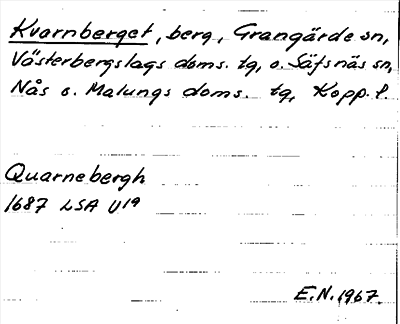 Kvarnberget, berg, Grangärde sn,
Västerbergslags doms. tg, o. Säfsnäs sn,
Nås o. Malungs doms. tg, Kopp. l.
Quarnebergh
1687 LSA U19
E.N. 1967.